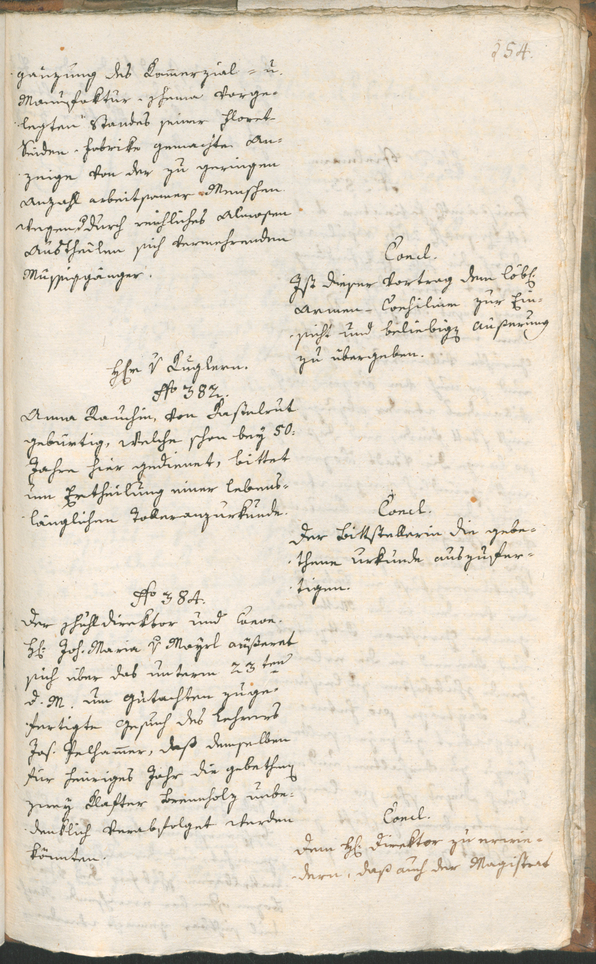 254.
gänzung des Kommerzial- u.
Manufaktur-schema vorge-
legten Standes seiner Floret-
seiden-Fabrike gemachte An-
zeige von der zu geringen
Anzahl arbeitsamer Menschen
wegen durch reichliches Almosen
Austheilen sich vermehrenden
Müssiggänger.
Concl.
Ist dieser Vortrag dem löbl.
Armen-Consilium zur Ein-
sicht und beliebig. Äußerung
zu übergeben.
Hhr. v Kuglern.
No 382.
Anna Rauchin, von Kastelrut
gebürtig, welche schon bey 50.
Jahre hier gedienet, bittet
um Ertheilung einer lebens-
länglichen Tolleranzurkunde.
Concl.
Der Bittstellerin die gebe-
thene Urkunde auszufer-
tigen.
No 384.
Der Schuldirektor und Canon.
H. Joh. Maria v Mayrl äußeret
sich über das unterm 23ten
d. M. um Gutachten zuge-
fertigte Gesuch des Lehrers
Jos. Pelhamer, daß demselben
für heuriges Jahr die gebethen
zwey Klafter Brennholz unbe-
denklich verabfolget werden
könnten.
Concl.
Dem H. Direktor zu erwie-
dern, daß auch der Magistrat